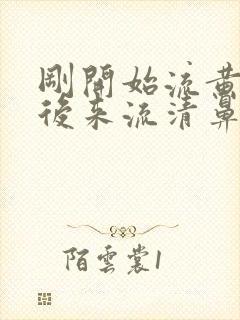 剛開始流黃
後來流清鼻
陌雲裳1